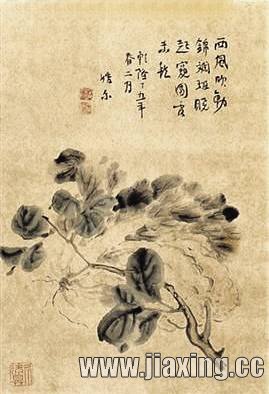 西風吹動
錦斕斑曉
起窺園露
未乾
乾隆十五年
春二月
www.jiaxing.cc